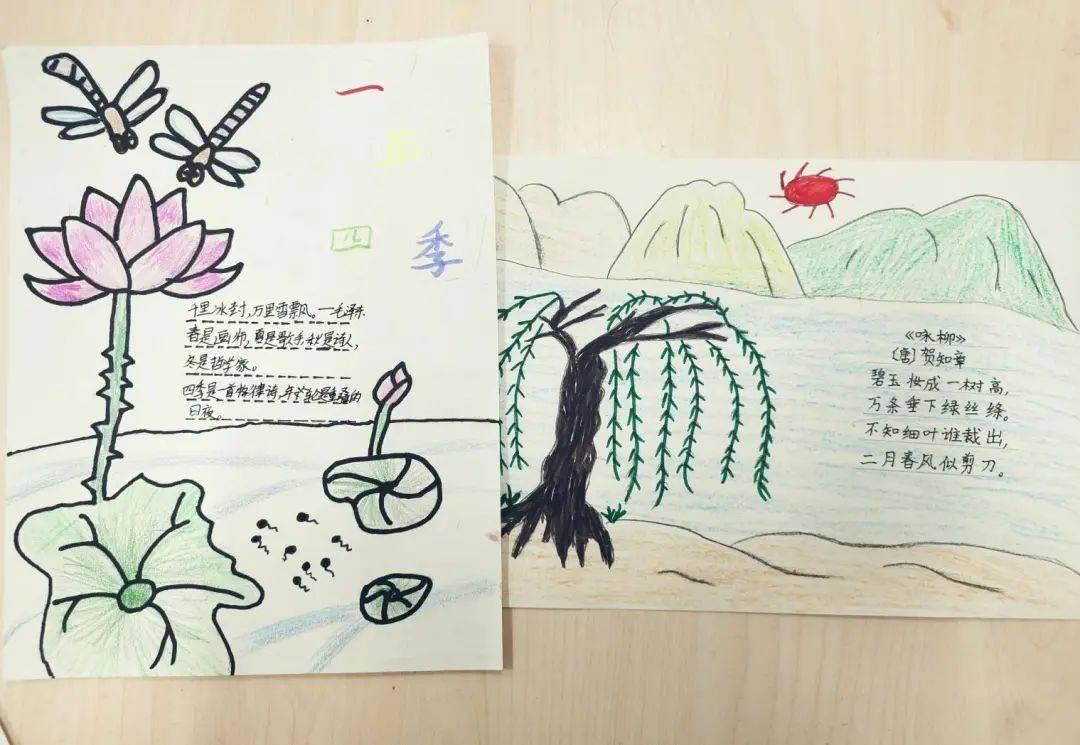 一
年
四
季
千里冰封,万里雪飘。一毛泽东
春是画师,夏是歌手,秋是诗人,
冬是哲学家。
四季是一首格律诗,年轮是重叠的
日夜。
《咏柳》
〔唐〕贺知章
碧玉妆成一树高,
万条垂下绿丝绦。
不知细叶谁裁出,
二月春风似剪刀。